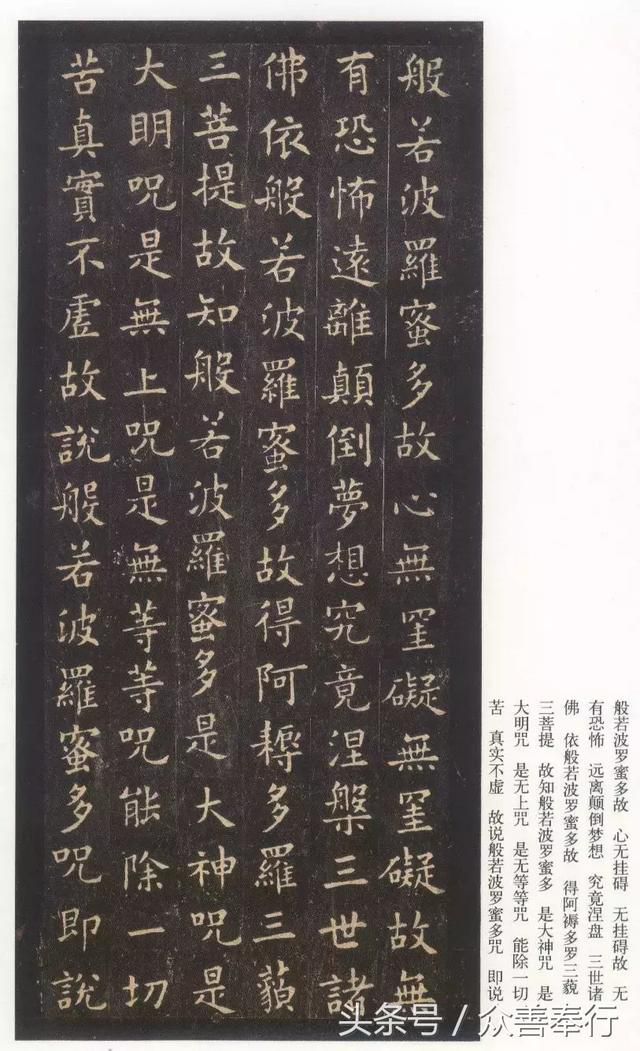 般若波羅蜜多故心無罣礙無罣礙故無
有恐怖遠離顛倒夢想究竟涅槃三世諸
佛依般若波羅蜜多故得阿耨多羅三藐
三菩提故知般若波羅蜜多是大神呪是
大明呪是無上呪是無等等呪能除一切
苦真實不虛故說般若波羅蜜多呪即說
般若波罗蜜多故 心无挂碍 无挂碍故 无
有恐怖 远离颠倒梦想 究竟涅盘 三世诸
佛 依般若波罗蜜多故 得阿褥多罗三藐
三菩提 故知般若波罗蜜多 是大神咒 是
大明咒 是无上咒 是无等等咒 能除一切
苦 真实不虚 故说般若波罗蜜多咒 即说
头条号/众善奉行